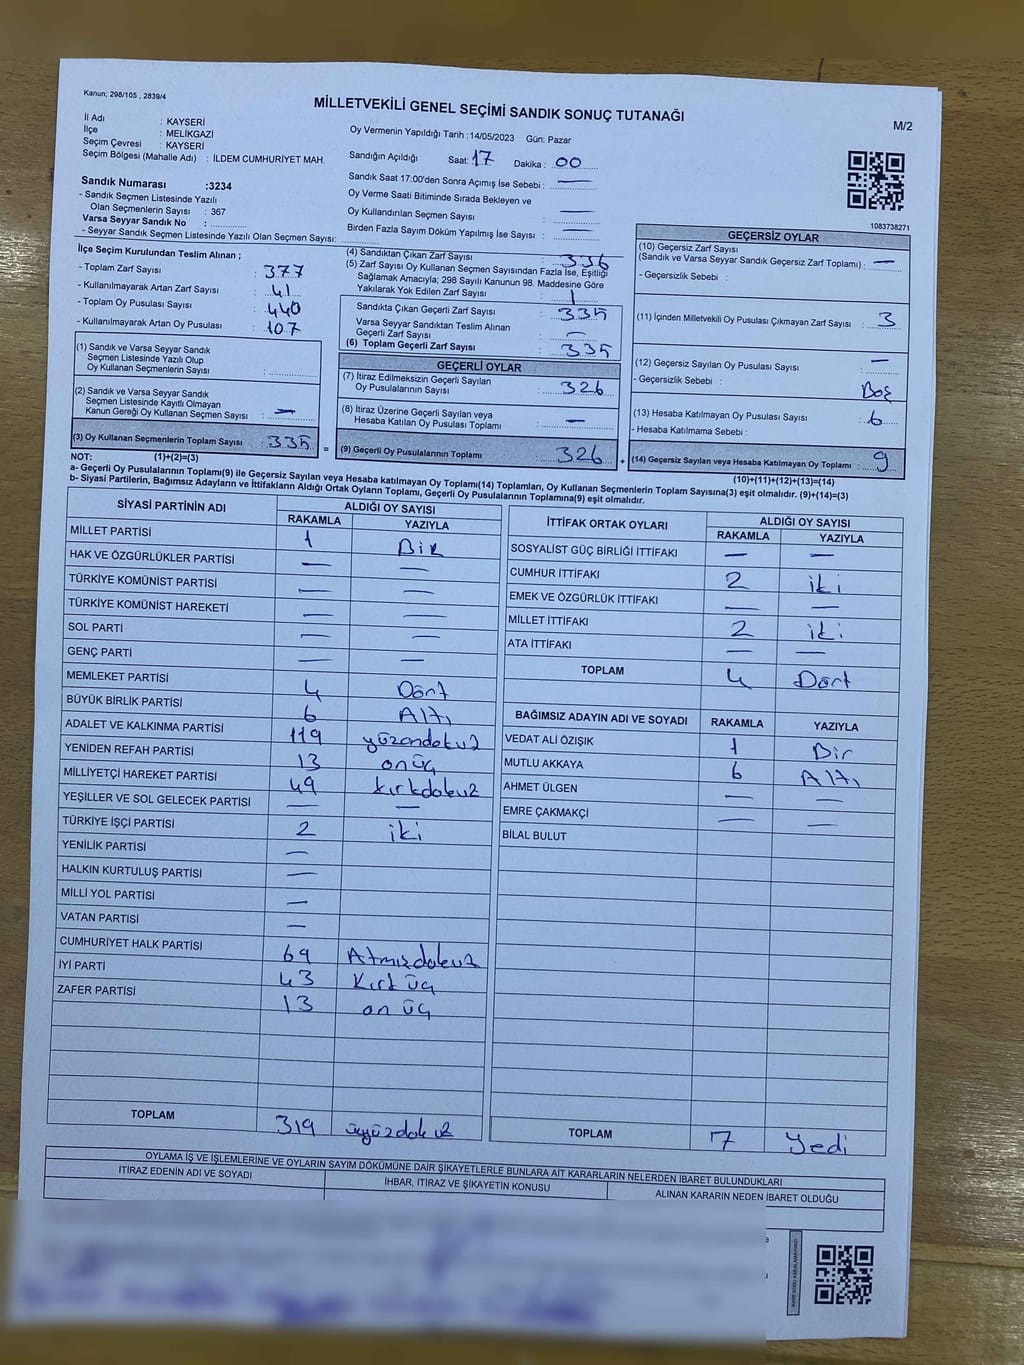 Kanun; 298/105 , 2839/4
MİLLETVEKİLİ GENEL SEÇİMİ SANDIK SONUÇ TUTANAĞI
M/2
İl Adı : KAYSERİ
İlçe : MELİKGAZİ
Seçim Çevresi : KAYSERİ
Seçim Bölgesi (Mahalle Adı) : İLDEM CUMHURİYET MAH.
Oy Vermenin Yapıldığı Tarih :14/05/2023 Gün: Pazar
Sandığın Açıldığı Saat: 17 Dakika : 00
Sandık Saat 17:00'den Sonra Açımış İse Sebebi : —
Oy Verme Saati Bitiminde Sırada Bekleyen ve
Oy Kullandırılan Seçmen Sayısı : —
Birden Fazla Sayım Döküm Yapılmış İse Sayısı : —
Sandık Numarası :3234
- Sandık Seçmen Listesinde Yazılı
Olan Seçmenlerin Sayısı : 367
Varsa Seyyar Sandık No :
- Seyyar Sandık Seçmen Listesinde Yazılı Olan Seçmen Sayısı:
1083738271
İlçe Seçim Kurulundan Teslim Alınan ;
- Toplam Zarf Sayısı : 377
- Kullanılmayarak Artan Zarf Sayısı : 41
- Toplam Oy Pusulası Sayısı : 440
- Kullanılmayarak Artan Oy Pusulası : 107
(1) Sandık ve Varsa Seyyar Sandık
Seçmen Listesinde Yazılı Olup
Oy Kullanan Seçmenlerin Sayısı :
(2) Sandık ve Varsa Seyyar Sandık
Seçmen Listesinde Kayıtlı Olmayan
Kanun Gereği Oy Kullanan Seçmen Sayısı : —
(3) Oy Kullanan Seçmenlerin Toplam Sayısı : 335 =
(4) Sandıktan Çıkan Zarf Sayısı : 336
(5) Zarf Sayısı Oy Kullanan Seçmen Sayısından Fazla İse, Eşitliği
Sağlamak Amacıyla; 298 Sayılı Kanunun 98. Maddesine Göre
Yakılarak Yok Edilen Zarf Sayısı : 1
Sandıkta Çıkan Geçerli Zarf Sayısı : 335
Varsa Seyyar Sandıktan Teslim Alınan
Geçerli Zarf Sayısı : —
(6) Toplam Geçerli Zarf Sayısı : 335
GEÇERLİ OYLAR
(7) İtiraz Edilmeksizin Geçerli Sayılan
Oy Pusulalarının Sayısı : 326
(8) İtiraz Üzerine Geçerli Sayılan veya
Hesaba Katılan Oy Pusulası Toplamı : —
(9) Geçerli Oy Pusulalarının Toplamı : 326 +
GEÇERSİZ OYLAR
(10) Geçersiz Zarf Sayısı
(Sandık ve Varsa Seyyar Sandık Geçersiz Zarf Toplamı) : —
- Geçersizlik Sebebi :
(11) İçinden Milletvekili Oy Pusulası Çıkmayan Zarf Sayısı : 3
(12) Geçersiz Sayılan Oy Pusulası Sayısı : —
- Geçersizlik Sebebi : Boş
(13) Hesaba Katılmayan Oy Pusulası Sayısı : 6
- Hesaba Katılmama Sebebi :
(14) Geçersiz Sayılan veya Hesaba Katılmayan Oy Toplamı : 9
NOT: (1)+(2)=(3)
(10)+(11)+(12)+(13)=(14)
a- Geçerli Oy Pusulalarının Toplamı(9) ile Geçersiz Sayılan veya Hesaba Katılmayan Oy Toplamı(14) Toplamları, Oy Kullanan Seçmenlerin Toplam Sayısına(3) eşit olmalıdır. (9)+(14)=(3)
b- Siyasi Partilerin, Bağımsız Adayların ve İttifakların Aldığı Oyların Toplamı, Geçerli Oy Pusulalarının Toplamına(9) eşit olmalıdır.
SİYASİ PARTİNİN ADI ALDIĞI OY SAYISI
RAKAMLA YAZIYLA
MİLLET PARTİSİ 1 Bir
HAK VE ÖZGÜRLÜKLER PARTİSİ — —
TÜRKİYE KOMÜNİST PARTİSİ — —
TÜRKİYE KOMÜNİST HAREKETİ — —
SOL PARTİ — —
GENÇ PARTİ — —
MEMLEKET PARTİSİ 4 Dört
BÜYÜK BİRLİK PARTİSİ 6 Altı
ADALET VE KALKINMA PARTİSİ 119 yüzondokuz
YENİDEN REFAH PARTİSİ 13 onüç
MİLLİYETÇİ HAREKET PARTİSİ 49 kırkdokuz
YEŞİLLER VE SOL GELECEK PARTİSİ — —
TÜRKİYE İŞÇİ PARTİSİ 2 iki
YENİLİK PARTİSİ —
HALKIN KURTULUŞ PARTİSİ —
MİLLİ YOL PARTİSİ —
VATAN PARTİSİ —
CUMHURİYET HALK PARTİSİ 69 Atmışdokuz
İYİ PARTİ 43 Kırk üç
ZAFER PARTİSİ 13 on üç
TOPLAM 319 üçyüzdokuz
İTTİFAK ORTAK OYLARI ALDIĞI OY SAYISI
RAKAMLA YAZIYLA
SOSYALİST GÜÇ BİRLİĞİ İTTİFAKI — —
CUMHUR İTTİFAKI 2 iki
EMEK VE ÖZGÜRLÜK İTTİFAKI — —
MİLLET İTTİFAKI 2 iki
ATA İTTİFAKI — —
TOPLAM 4 Dört
BAĞIMSIZ ADAYIN ADI VE SOYADI RAKAMLA YAZIYLA
VEDAT ALİ ÖZIŞIK 1 Bir
MUTLU AKKAYA 6 Altı
AHMET ÜLGEN — —
EMRE ÇAKMAKÇİ — —
BİLAL BULUT
TOPLAM 7 Yedi
OYLAMA İŞ VE İŞLEMLERİNE VE OYLARIN SAYIM DÖKÜMÜNE DAİR ŞİKAYETLERLE BUNLARA AİT KARARLARIN NELERDEN İBARET BULUNDUKLARI
İTİRAZ EDENİN ADI VE SOYADI İHBAR, İTİRAZ VE ŞİKAYETİN KONUSU ALINAN KARARIN NEDEN İBARET OLDUĞU